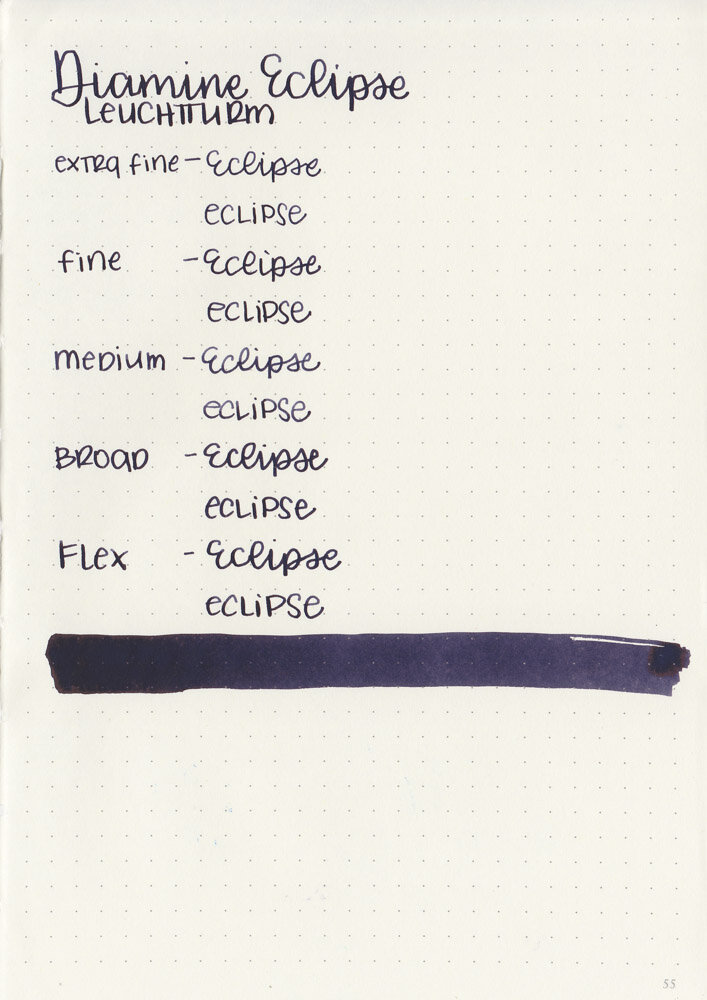 Diamine Eclipse
LEUCHTTURM
extra fine - Eclipse
eclipse
fine - Eclipse
eclipse
medium - Eclipse
eclipse
Broad - Eclipse
eclipse
Flex - Eclipse
eclipse
55